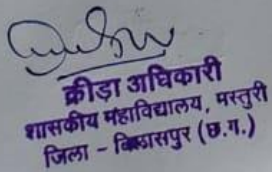 क्रीड़ा अधिकारी
शासकीय महाविद्यालय, मस्तुरी
जिला - बिलासपुर (छ.ग.)